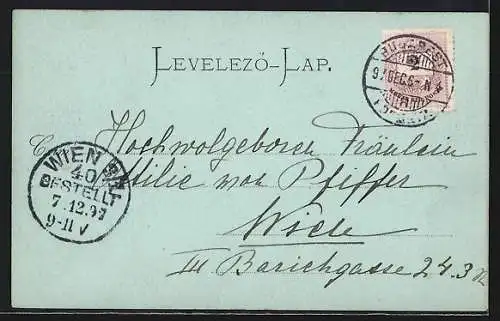 LEVELEZŐ-LAP.
BUDAPEST
2
97 DEC 6
WIEN
40
BESTELLT
7.12.97
9-11 V
Hochwolgeboren Fräulein
von Pfiffer
III Barichgasse 24.3